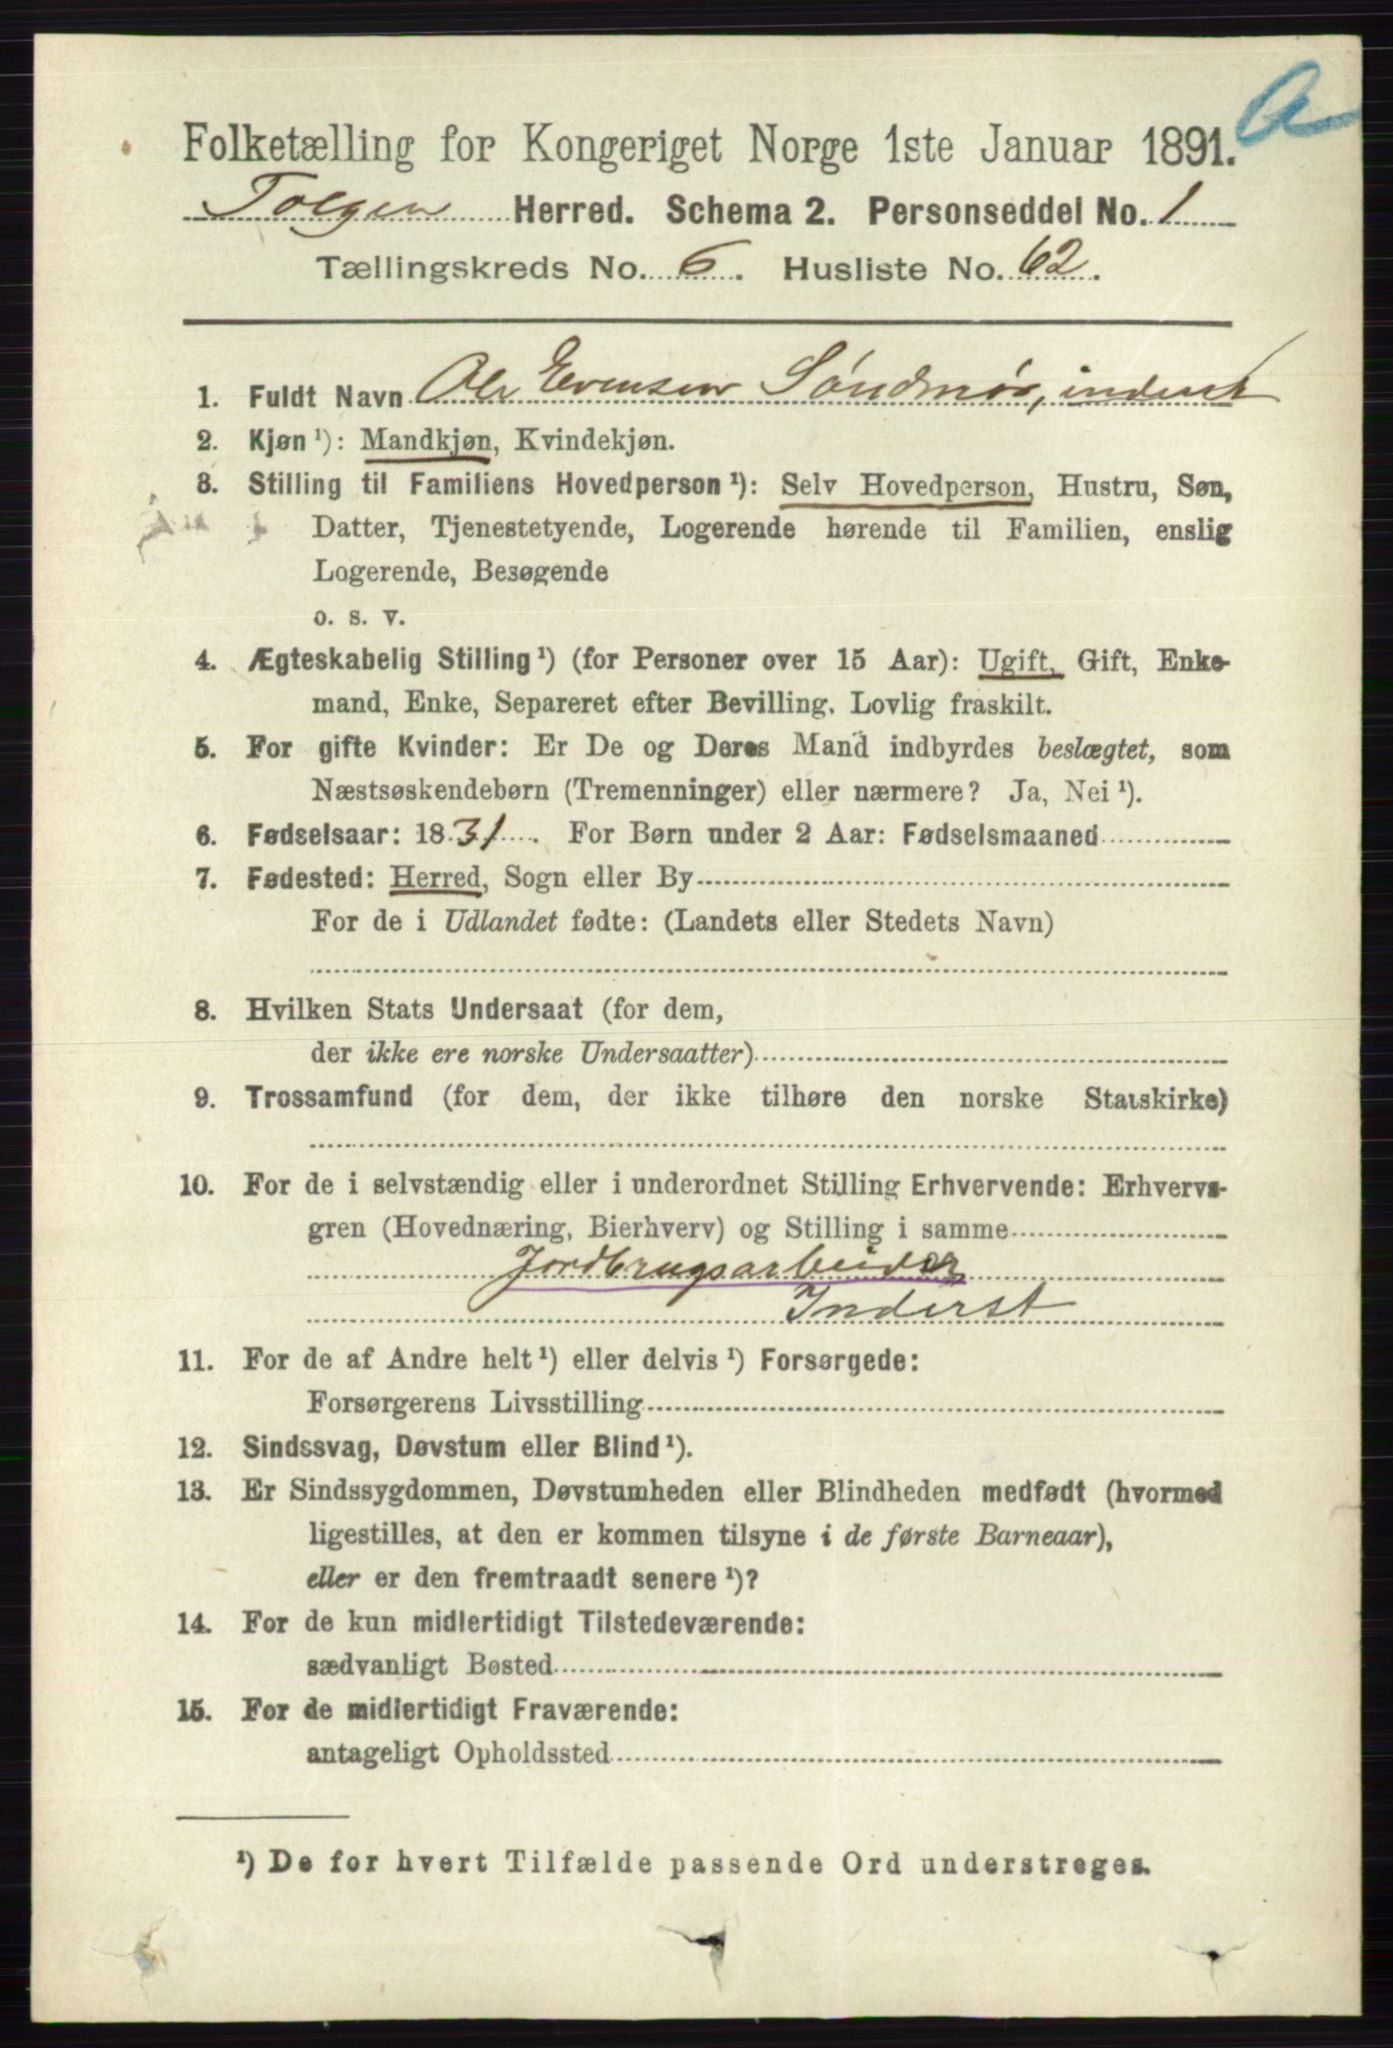 a
Folketælling for Kongeriget Norge 1ste Januar 1891.
Tolgen Herred. Schema 2. Personseddel No. 1
Tællingskreds No. 6. Husliste No. 62.
1. Fuldt Navn Ole Evensen Søndmør, inderst
2. Kjøn ¹): Mandkjøn, Kvindekjøn.
3. Stilling til Familiens Hovedperson ¹): Selv Hovedperson, Hustru, Søn,
Datter, Tjenestetyende, Logerende hørende til Familien, enslig
Logerende, Besøgende
o. s. v.
4. Ægteskabelig Stilling ¹) (for Personer over 15 Aar): Ugift, Gift, Enke-
mand, Enke, Separeret efter Bevilling. Lovlig fraskilt.
5. For gifte Kvinder: Er De og Deres Mand indbyrdes beslægtet, som
Næstsøskendebørn (Tremenninger) eller nærmere? Ja, Nei ¹).
6. Fødselsaar: 1831. For Børn under 2 Aar: Fødselsmaaned
7. Fødested: Herred, Sogn eller By
For de i Udlandet fødte: (Landets eller Stedets Navn)
8. Hvilken Stats Undersaat (for dem,
der ikke ere norske Undersaatter)
9. Trossamfund (for dem, der ikke tilhøre den norske Statskirke)
10. For de i selvstændig eller i underordnet Stilling Erhvervende: Erhvervs-
gren (Hovednæring, Bierhverv) og Stilling i samme
Jordbrugsarbeider
Inderst
11. For de af Andre helt ¹) eller delvis ¹) Forsørgede:
Forsørgerens Livsstilling
12. Sindssvag, Døvstum eller Blind ¹).
13. Er Sindssygdommen, Døvstumheden eller Blindheden medfødt (hvormed
ligestilles, at den er kommen tilsyne i de første Barneaar),
eller er den fremtraadt senere ¹)?
14. For de kun midlertidigt Tilstedeværende:
sædvanligt Bosted
15. For de midlertidigt Fraværende:
antageligt Opholdssted
¹) De for hvert Tilfælde passende Ord understreges.